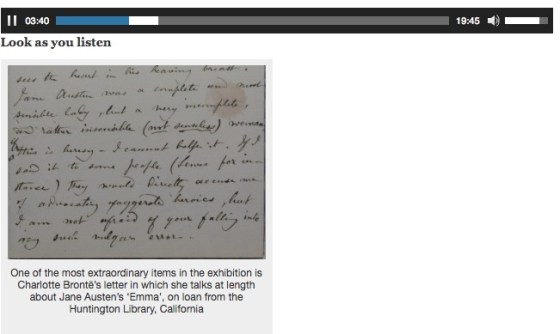 03:40
19:45
Look as you listen
sees the heart in this heaving breast.
Jane Austen was a complete and most
sensible lady, but a very incomplete,
and rather insensible (not senseless) woman,
this is heresy - I cannot help it. If I
said it to some people (Lewes for in-
stance) they would directly accuse me
of advocating exaggerated heroics, but
I am not afraid of your falling into
any such vulgar error.
One of the most extraordinary items in the exhibition is
Charlotte Brontë's letter in which she talks at length
about Jane Austen's 'Emma', on loan from the
Huntington Library, California